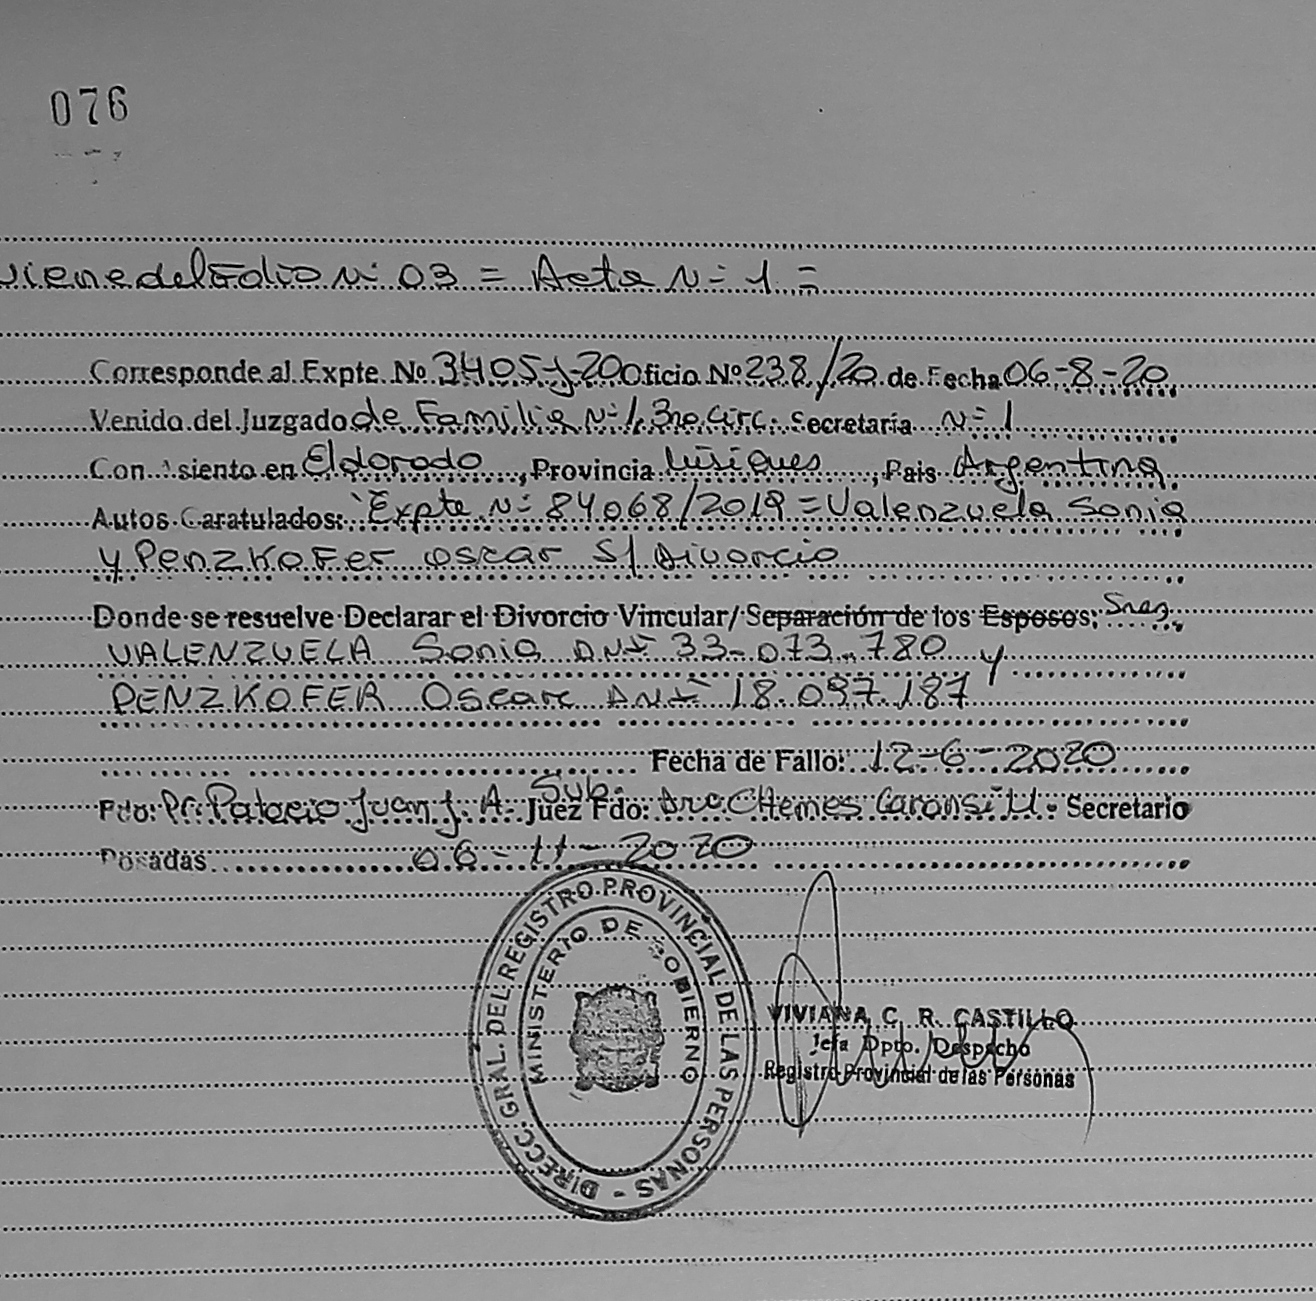 076
Viene del Folio Nº 03 = Acta Nº 1 =
Corresponde al Expte. Nº 3405-J-20 Oficio Nº 238/20 de Fecha 06-8-20
Venido del Juzgado de Familia Nº 1. 3ra Circ. Secretaría Nº 1
Con Asiento en Eldorado, Provincia Misiones, Pais Argentina
Autos Caratulados: "Expte Nº 84068/2019 = Valenzuela Sonia
y Penzkofer Oscar S/ Divorcio
Donde se resuelve Declarar el Divorcio Vincular/ Separación de los Esposos; Sres.
VALENZUELA Sonia DNI 33-073-780 y
PENZKOFER Oscar DNI 18.097.187
Fecha de Fallo: 12-6-2020
Fdo: Dr. Palacio Juan J. A. Juez Sub. Fdo: Dra. Chemes M. Secretario
Posadas 06-11-2020
DIRECC. GRAL. DEL REGISTRO PROVINCIAL DE LAS PERSONAS -
MINISTERIO DE GOBIERNO
VIVIANA C. R. CASTILLO
Jefa Dpto. Despacho
Registro Provincial de las Personas